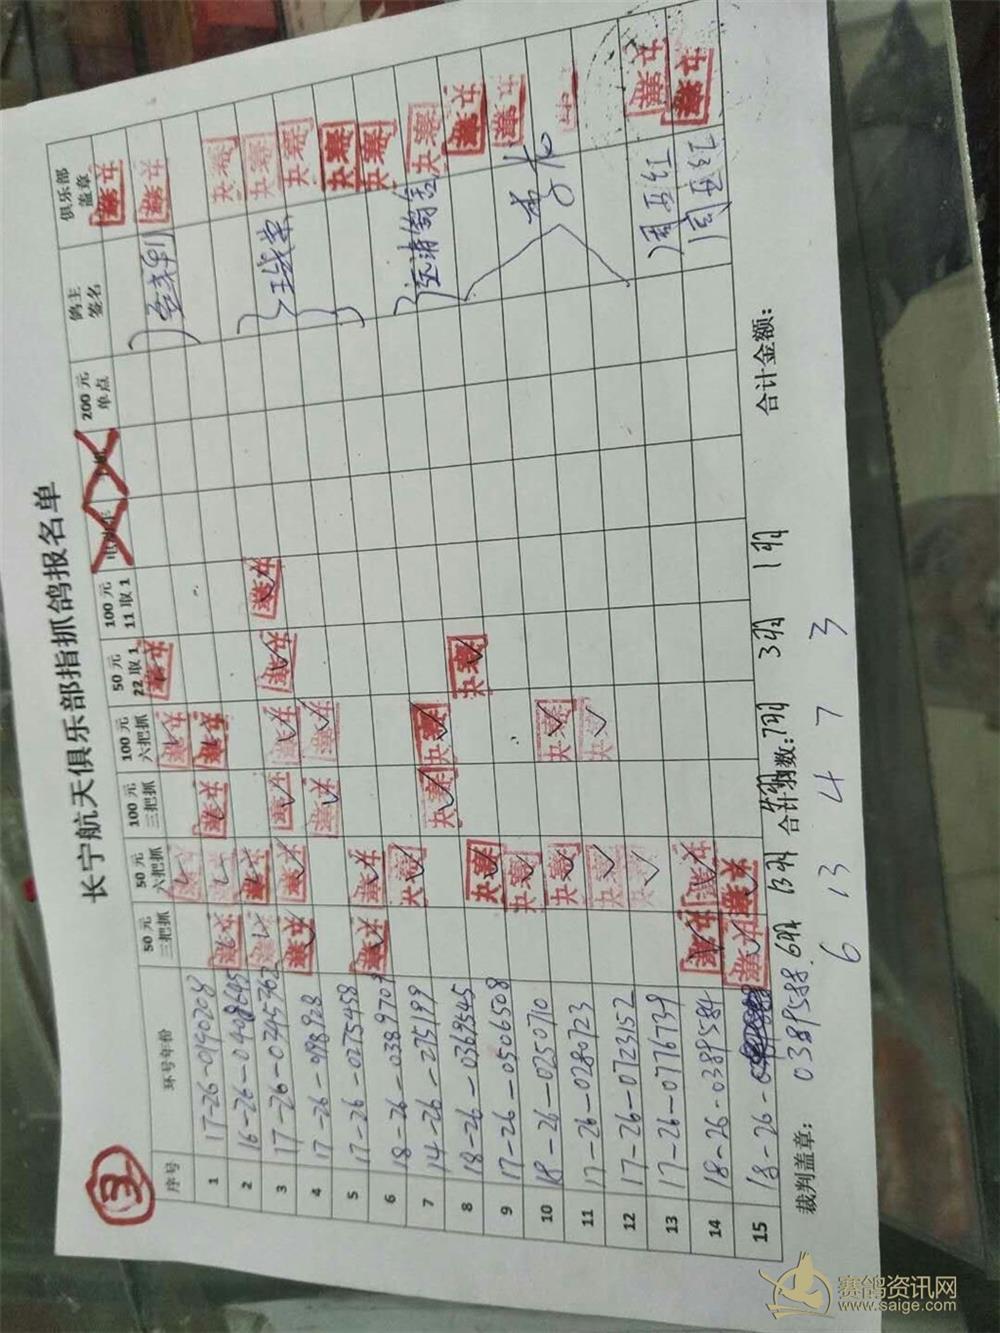 3
长宁航天俱乐部指抓鸽报名单
序号 环号年份 50元三把抓 50元六把抓 100元三把抓 100元六把抓 50元22取1 100元11取1 200元单点 鸽主签名 俱乐部盖章
1 17-26-0190208
2 16-26-0408645
3 17-26-0345362
4 17-26-098928
5 17-26-0275458
6 18-26-0389707
7 14-26-275199
8 18-26-0369545
9 17-26-0506508
10 18-26-0250710
11 17-26-0280723
12 17-26-0723152 李龙
13 17-26-0776739
14 18-26-0389584 周亚红
15 18-26- 周亚红
裁判盖章: 0389588 6羽 13羽 合计羽数: 7羽 3羽 1羽 合计金额:
6 13 4 7 3
赛鸽资讯网
www.saige.com